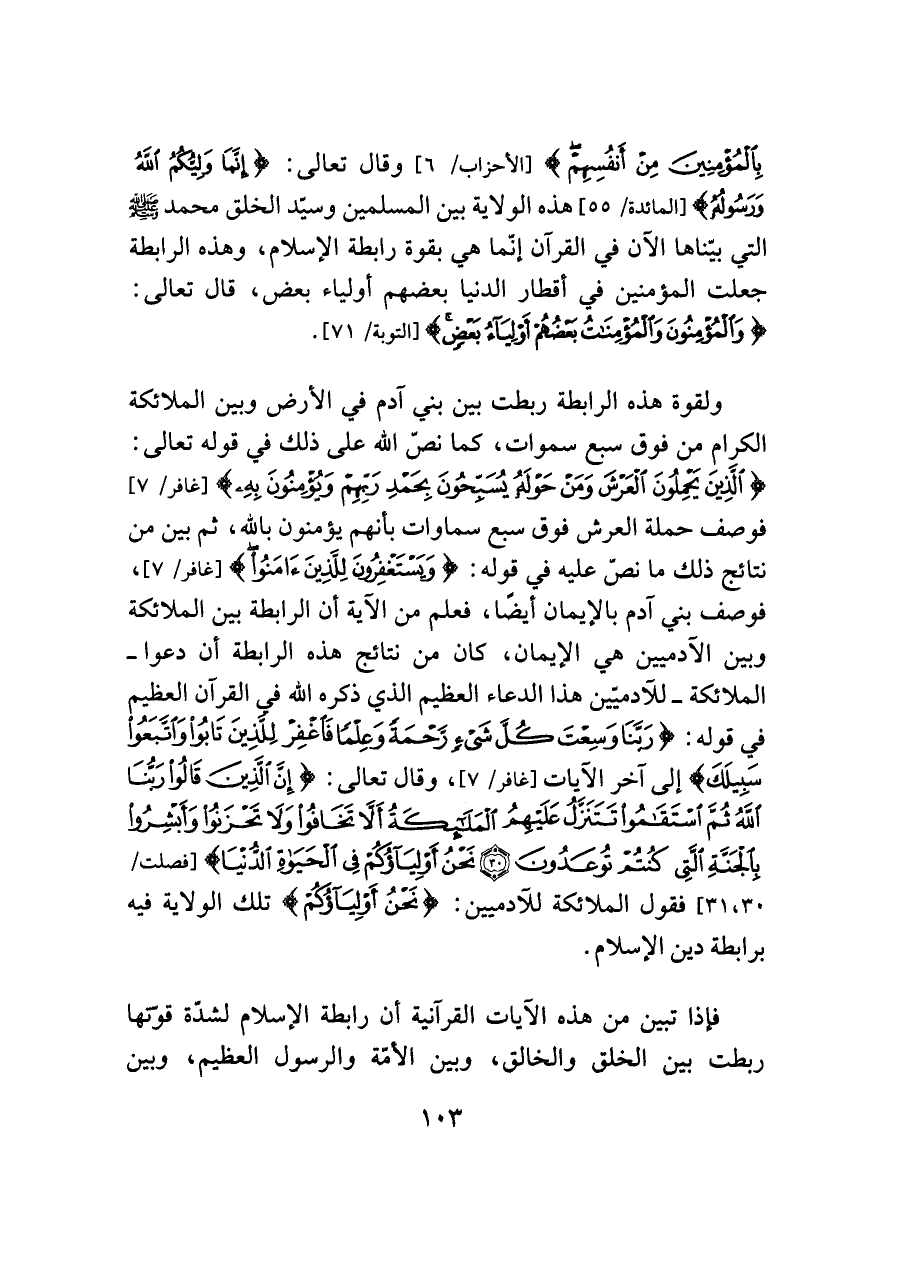 بِٱلْمُؤْمِنِينَ مِنْ أَنفُسِهِمْ ۖ ﴾ [الأحزاب/ ٦] وقال تعالى: ﴿ إِنَّمَا وَلِيُّكُمُ ٱللَّهُ
وَرَسُولُهُۥ ﴾ [المائدة/ ٥٥] هذه الولاية بين المسلمين وسيّد الخلق محمد ﷺ
التي بيّناها الآن في القرآن إنّما هي بقوة رابطة الإسلام، وهذه الرابطة
جعلت المؤمنين في أقطار الدنيا بعضهم أولياء بعض، قال تعالى:
﴿ وَٱلْمُؤْمِنُونَ وَٱلْمُؤْمِنَٰتُ بَعْضُهُمْ أَوْلِيَآءُ بَعْضٍ ۚ ﴾ [التوبة/ ٧١].
ولقوة هذه الرابطة ربطت بين بني آدم في الأرض وبين الملائكة
الكرام من فوق سبع سموات، كما نصّ الله على ذلك في قوله تعالى:
﴿ ٱلَّذِينَ يَحْمِلُونَ ٱلْعَرْشَ وَمَنْ حَوْلَهُۥ يُسَبِّحُونَ بِحَمْدِ رَبِّهِمْ وَيُؤْمِنُونَ بِهِۦ ﴾ [غافر/ ٧]
فوصف حملة العرش فوق سبع سماوات بأنهم يؤمنون بالله، ثم بين من
نتائج ذلك ما نصّ عليه في قوله: ﴿ وَيَسْتَغْفِرُونَ لِلَّذِينَ ءَامَنُوا۟ ۖ ﴾ [غافر/ ٧]،
فوصف بني آدم بالإيمان أيضًا، فعلم من الآية أن الرابطة بين الملائكة
وبين الآدميين هي الإيمان، كان من نتائج هذه الرابطة أن دعوا ـ
الملائكة ـ للآدميّين هذا الدعاء العظيم الذي ذكره الله في القرآن العظيم
في قوله: ﴿ رَبَّنَا وَسِعْتَ كُلَّ شَىْءٍ رَّحْمَةً وَعِلْمًا فَٱغْفِرْ لِلَّذِينَ تَابُوا۟ وَٱتَّبَعُوا۟
سَبِيلَكَ ﴾ إلى آخر الآيات [غافر/ ٧]، وقال تعالى: ﴿ إِنَّ ٱلَّذِينَ قَالُوا۟ رَبُّنَا
ٱللَّهُ ثُمَّ ٱسْتَقَٰمُوا۟ تَتَنَزَّلُ عَلَيْهِمُ ٱلْمَلَٰٓئِكَةُ أَلَّا تَخَافُوا۟ وَلَا تَحْزَنُوا۟ وَأَبْشِرُوا۟
بِٱلْجَنَّةِ ٱلَّتِى كُنتُمْ تُوعَدُونَ ۝٣٠ نَحْنُ أَوْلِيَآؤُكُمْ فِى ٱلْحَيَوٰةِ ٱلدُّنْيَا ﴾ [فصلت/
٣١،٣٠] فقول الملائكة للآدميين: ﴿ نَحْنُ أَوْلِيَآؤُكُمْ ﴾ تلك الولاية فيه
برابطة دين الإسلام.
فإذا تبين من هذه الآيات القرآنية أن رابطة الإسلام لشدّة قوّتها
ربطت بين الخلق والخالق، وبين الأمّة والرسول العظيم، وبين
١٠٣